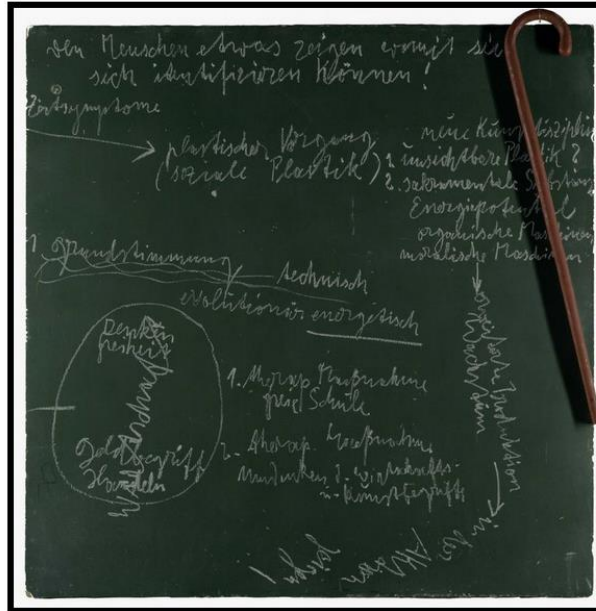 den Menschen etwas zeigen womit sie
sich identifizieren können!
Zeitsymptome
plastischer Vorgang
(soziale Plastik)
1. unsichtbare Plastik?
2. sakramentale Substanz
Energiepotential
organische Maschinen
moralische Maschinen
1. Grundstimmung
technisch
evolutionär energetisch
Denken
freiheit
Geldbegriff
Handeln
1. therap. Maßnahme
freie Schule
2. therap. Maßnahme
Umdenken d. Wirtschafts-
u. Kunstbegriffs
Produktion
Wachstum
in